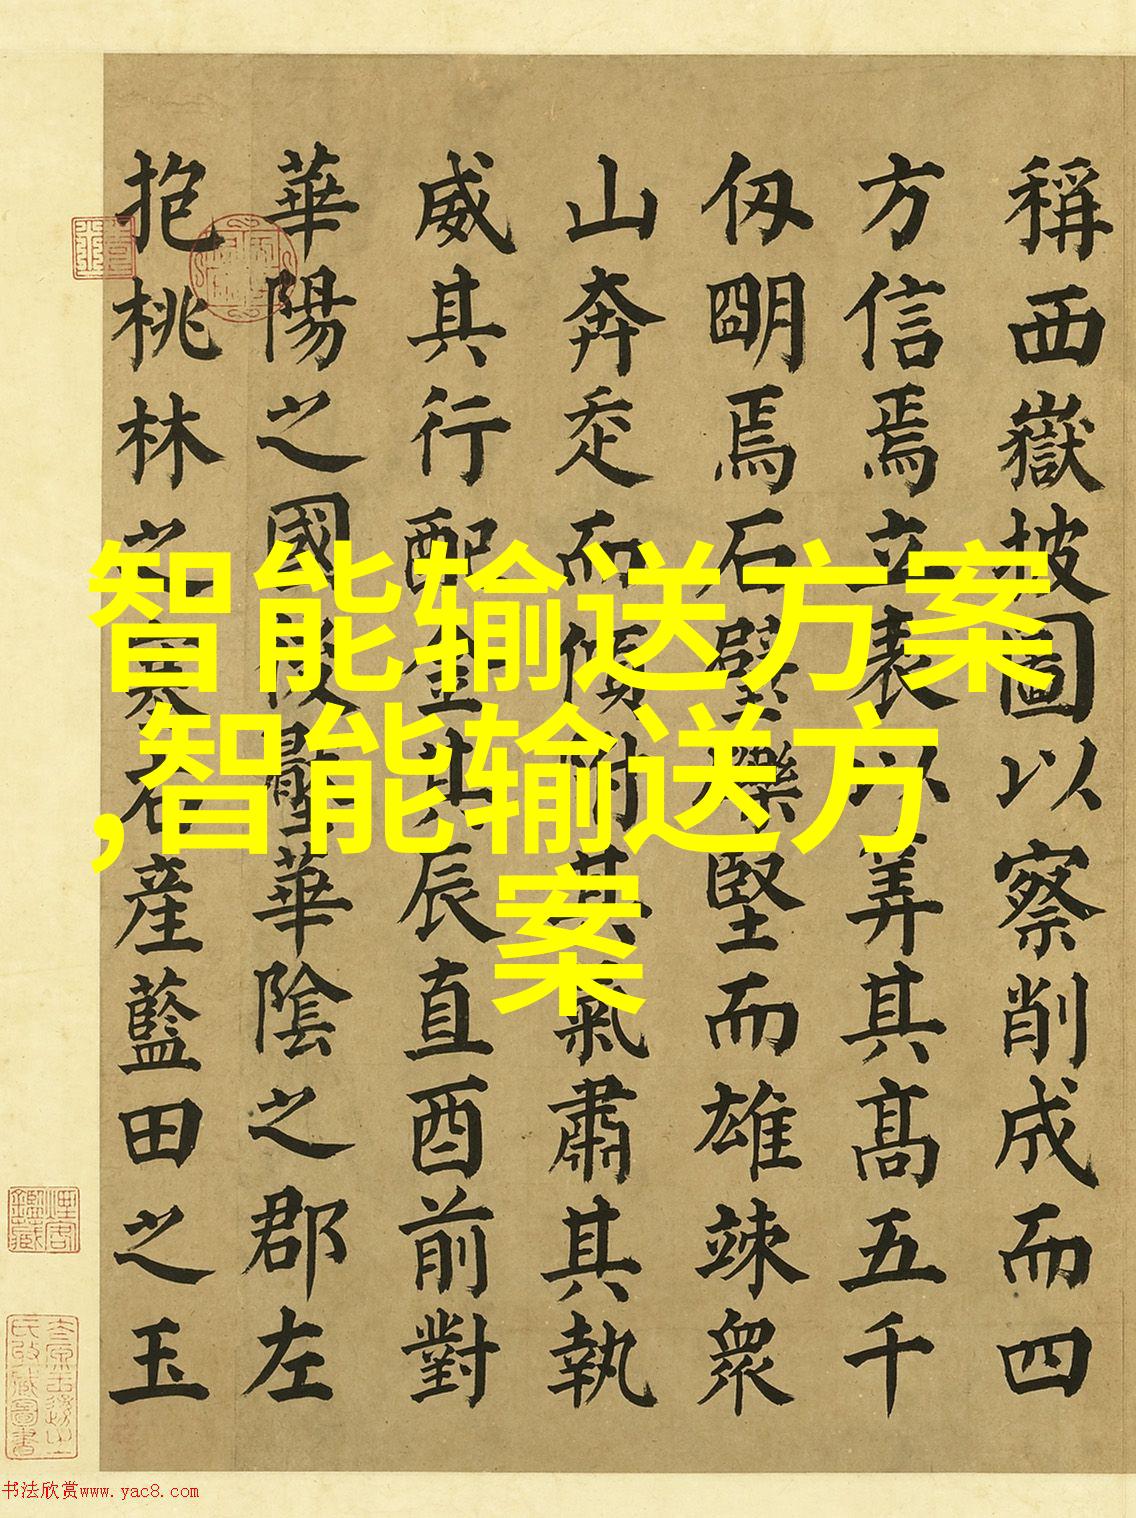 稱西嶽披圖以察削成而四
方信焉立表以筭其髙五千
仭朙焉石壁堅而雄竦眾
山奔走而傾附其氣肅其執
威其行配金其辰直酉前對
華陽之國後壓華陰之郡左
抱桃林之塞右產藍田之玉
智能输送方案
,智能输送方
案
书法欣赏www.yac8.com